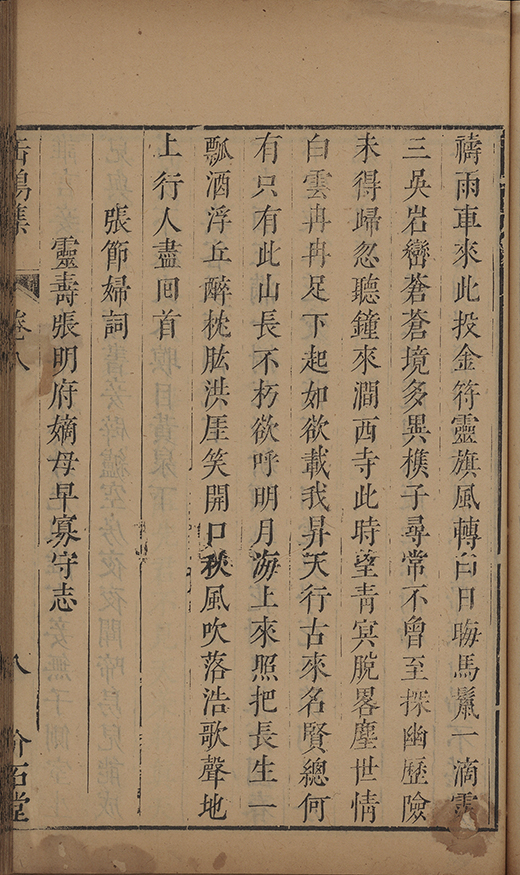 禱雨車來此投金符靈旗風轉白日晦馬鬣一滴雲
三吳岩巒蒼蒼境多異樵子尋常不曾至探幽歷險
未得歸忽聽鐘來澗西寺此時望青冥脫畧塵世情
白雲冉冉足下起如欲載我昇天行古來名賢總何
有只有此山長不朽欲呼明月海上來照把長生一
瓢酒浮丘醉枕肱洪厓笑開口秋風吹落浩歌聲地
上行人盡回首
張節婦詞
靈壽張明府嫡母早寡守志
缶鳴集
卷八
八
介石堂